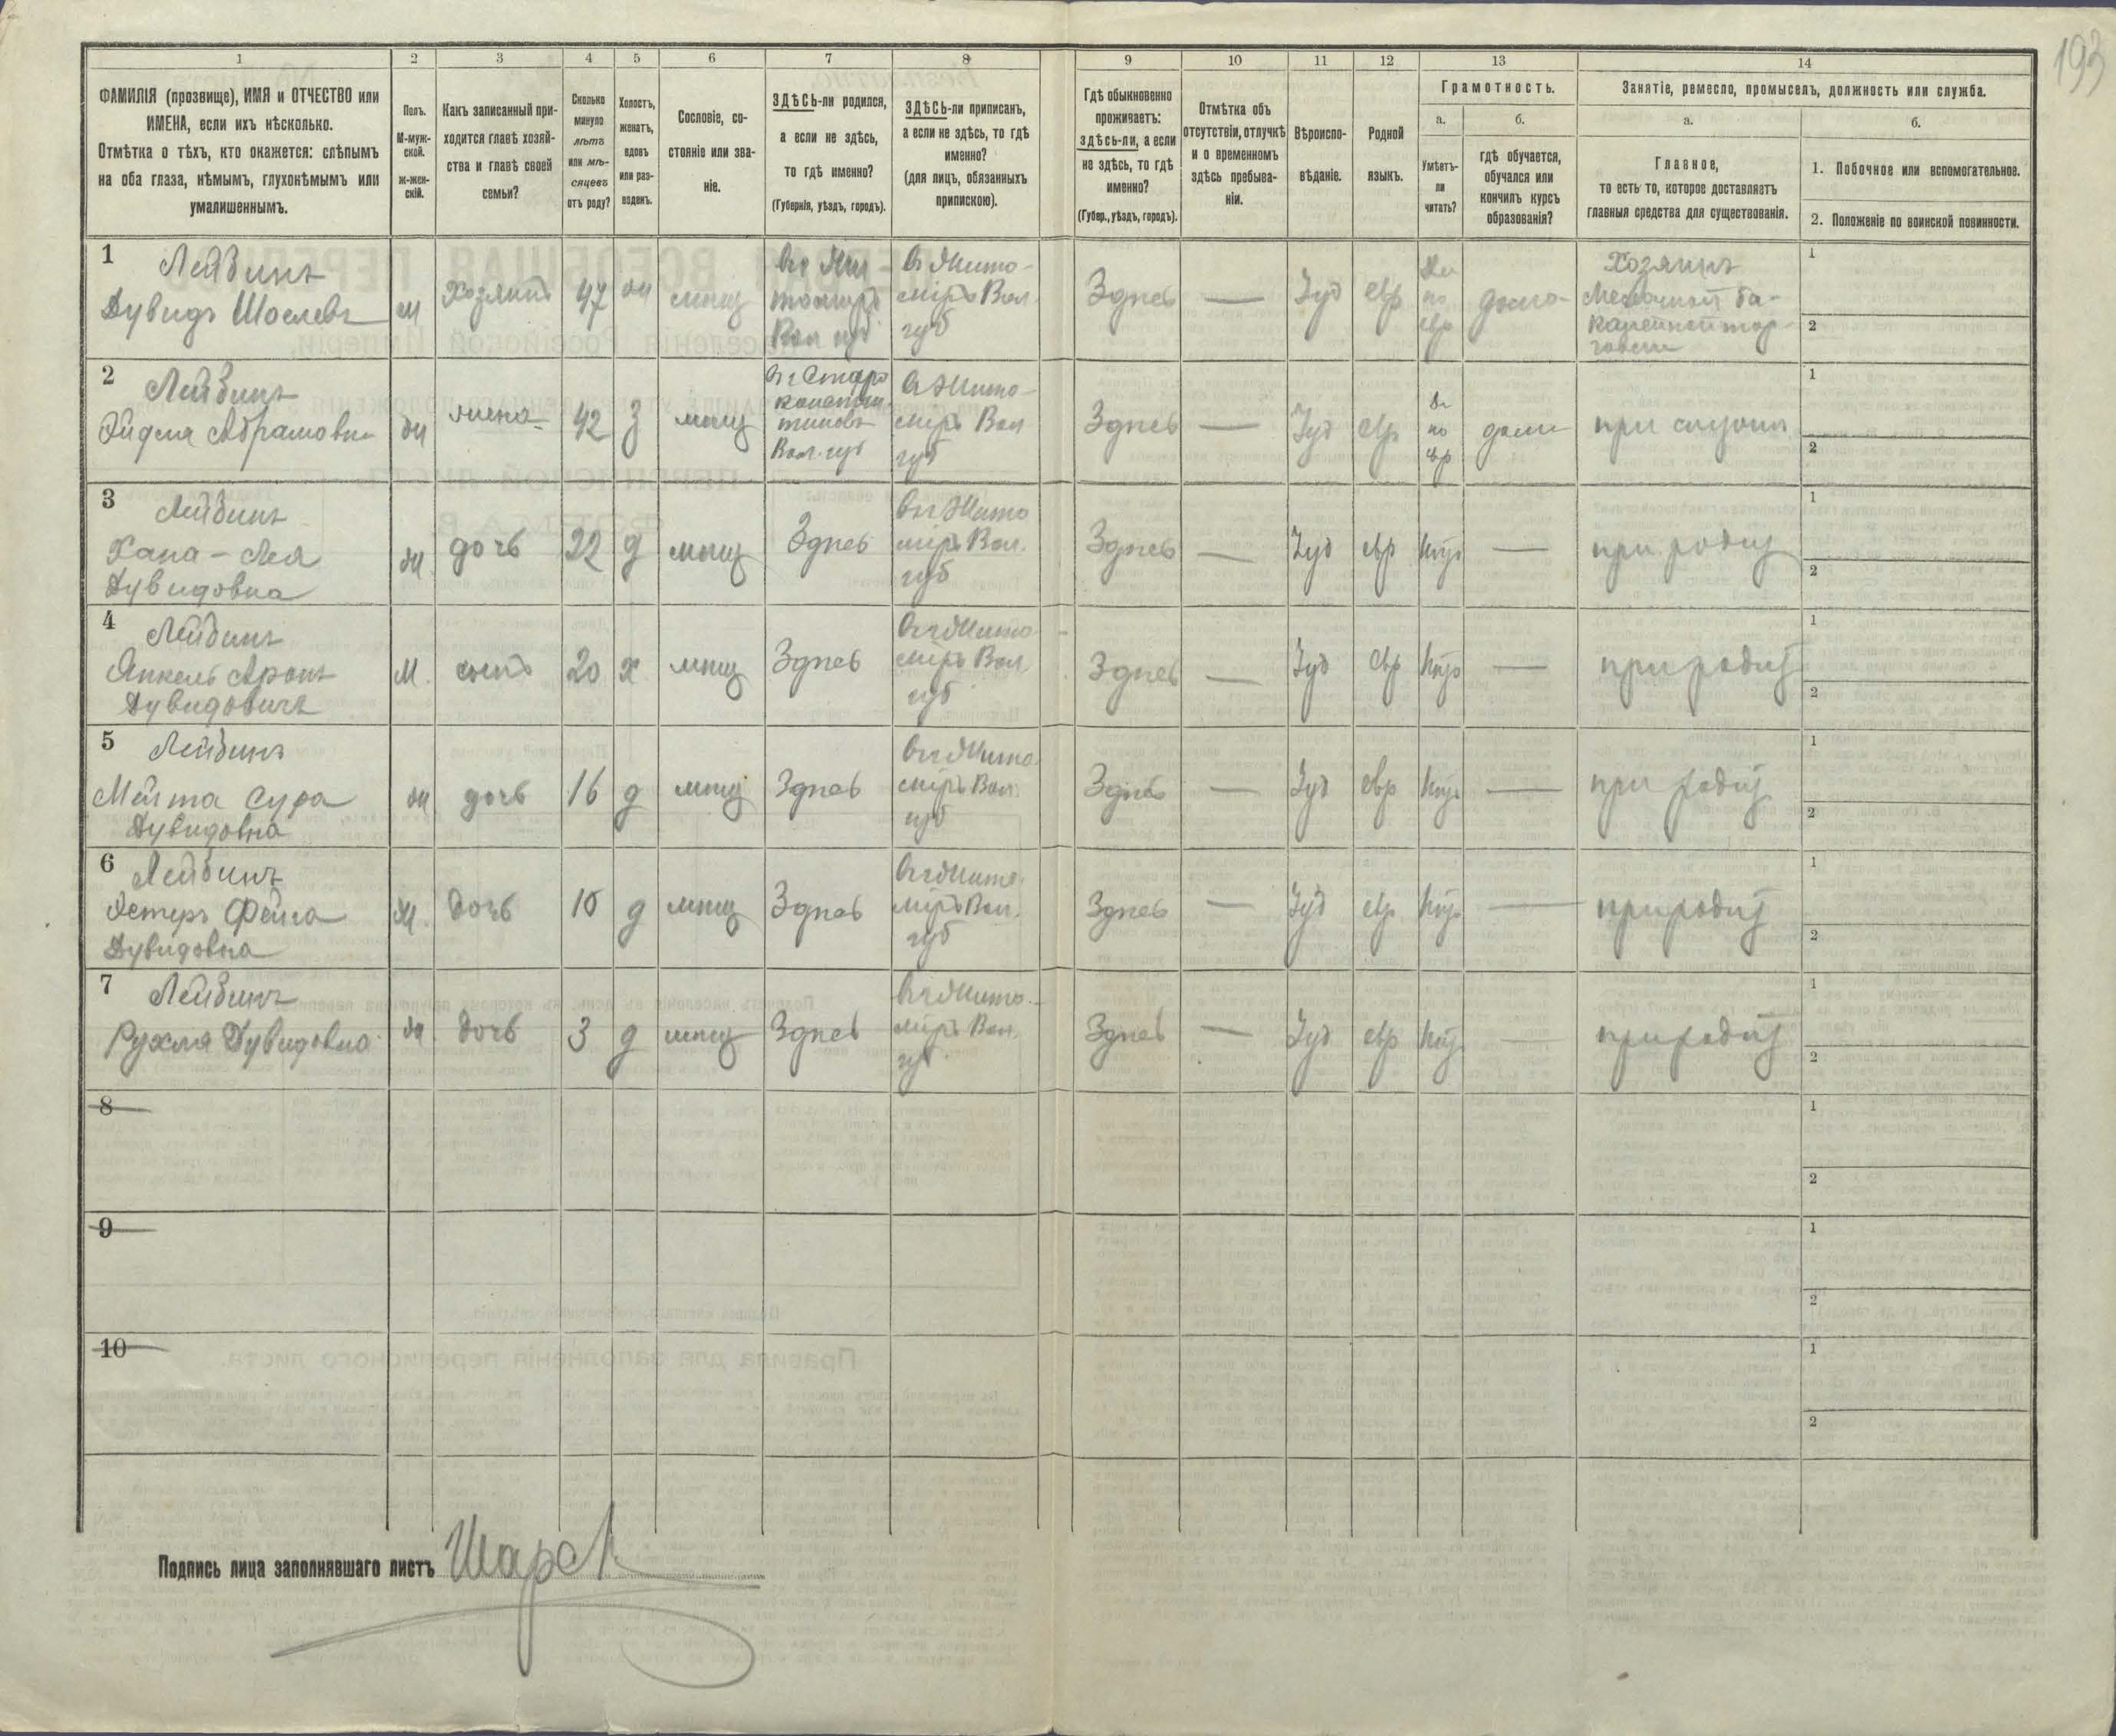 193
1 2 3 4 5 6 7 8 9 10 11 12 13 14
ФАМИЛІЯ (прозвище), ИМЯ и ОТЧЕСТВО или
ИМЕНА, если ихъ нѣсколько.
Отмѣтка о тѣхъ, кто окажется: слѣпымъ
на оба глаза, нѣмымъ, глухонѣмымъ или
умалишеннымъ.
Полъ.
М-муж-
ской.
ж-жен-
скій.
Какъ записанный при-
ходится главѣ хозяй-
ства и главѣ своей
семьи?
Сколько
минуло
лѣтъ
или мѣ-
сяцевъ
отъ роду?
Холостъ,
женатъ,
вдовъ
или раз-
веденъ.
Сословіе, со-
стояніе или зва-
ніе.
ЗДѢСЬ-ли родился,
а если не здѣсь,
то гдѣ именно?
(Губернія, уѣздъ, городъ).
ЗДѢСЬ-ли приписанъ,
а если не здѣсь, то гдѣ
именно?
(для лицъ, обязанныхъ
припискою).
Гдѣ обыкновенно
проживаетъ:
здѣсь-ли, а если
не здѣсь, то гдѣ
именно?
(Губер., уѣздъ, городъ).
Отмѣтка объ
отсутствіи, отлучкѣ
и о временномъ
здѣсь пребыва-
ніи.
Вѣроиспо-
вѣданіе.
Родной
языкъ.
Грамотность.
а.
Умѣетъ-
ли
читать?
б.
гдѣ обучается,
обучался или
кончилъ курсъ
образованія?
Занятіе, ремесло, промыселъ, должность или служба.
а.
Главное,
то есть то, которое доставляетъ
главныя средства для существованія.
б.
1. Побочное или вспомогательное.
2. Положеніе по воинской повинности.
1
Лейбинъ
Дувидъ Шоелевъ
м
Хозяинъ
47
ж
мѣщ
Вол губ
Житомиръ Вол.
губ
Здѣсь
—
Іуд
евр
по
евр
дома
Хозяинъ
Мелочной ба-
калейной тор-
говли
1
2
2
Лейбинъ
Эйдля Абрамовна
ж
жена
42
з
мѣщ
Вг Старо
констан
тиновъ
Вол. губ
Вг Жито-
миръ Вол
губ
Здѣсь
—
Іуд
евр
по
евр
дома
при мужѣ
1
2
3
Лейбинъ
Хана-Лея
Дувидовна
ж
дочь
22
д
мѣщ
Здѣсь
Вг Жито
миръ Вол.
губ
Здѣсь
—
Іуд
евр
—
при родит
1
2
4
Лейбинъ
Янкель Аронъ
Дувидовичъ
М.
сынъ
20
х
мѣщ
Здѣсь
Вг Жито
миръ Вол.
губ
Здѣсь
—
Іуд
евр
—
при родит
1
2
5
Лейбинъ
Мейта Сура
Дувидовна
ж
дочь
16
д
мѣщ
Здѣсь
Вг Жито
миръ Вол.
губ
Здѣсь
—
Іуд
евр
—
при родит
1
2
6
Лейбинъ
Эстеръ Фейга
Дувидовна
ж.
дочь
10
д
мѣщ
Здѣсь
Вг Жито
миръ Вол.
губ
Здѣсь
—
Іуд
евр
—
при родит
1
2
7
Лейбинъ
Рухля Дувидовна
ж
дочь
3
д
мѣщ
Здѣсь
Вг Жито
миръ Вол.
губ
Здѣсь
—
Іуд
евр
—
при родит
1
2
8
1
2
9
1
2
10
1
2
Подпись лица заполнявшаго листъ